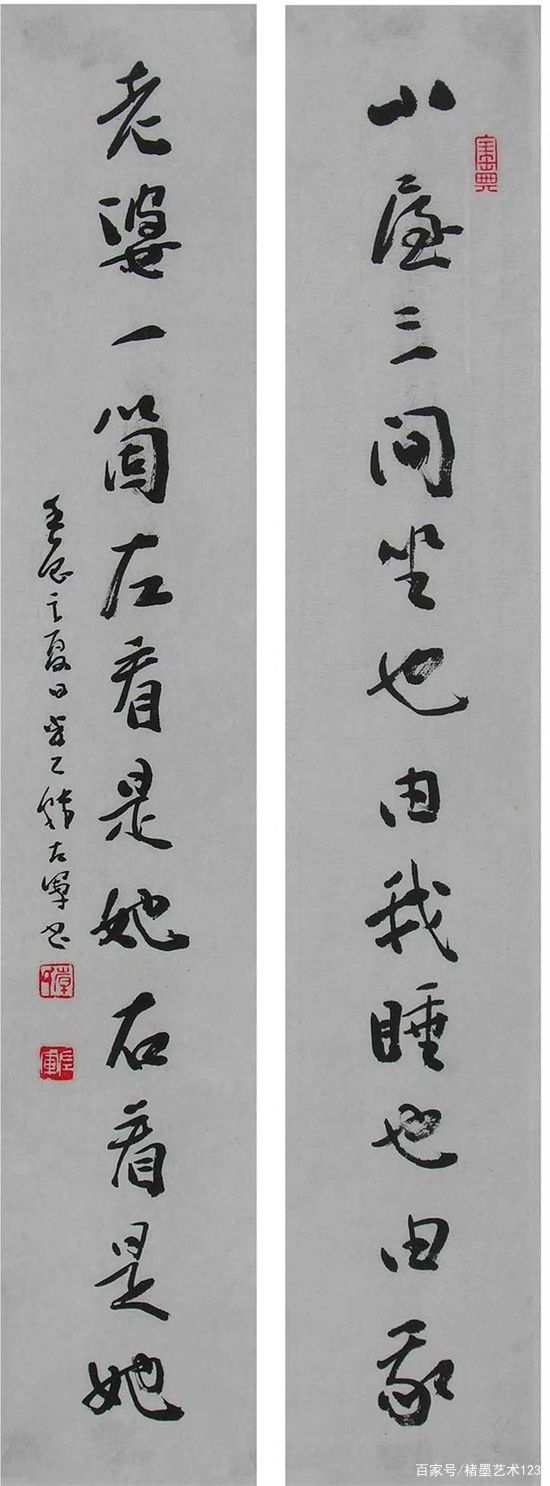 小屋三间坐也由我睡也由我
老婆一箇左看是她右看是她
之夏日 左军书
百家号/楮墨艺术123